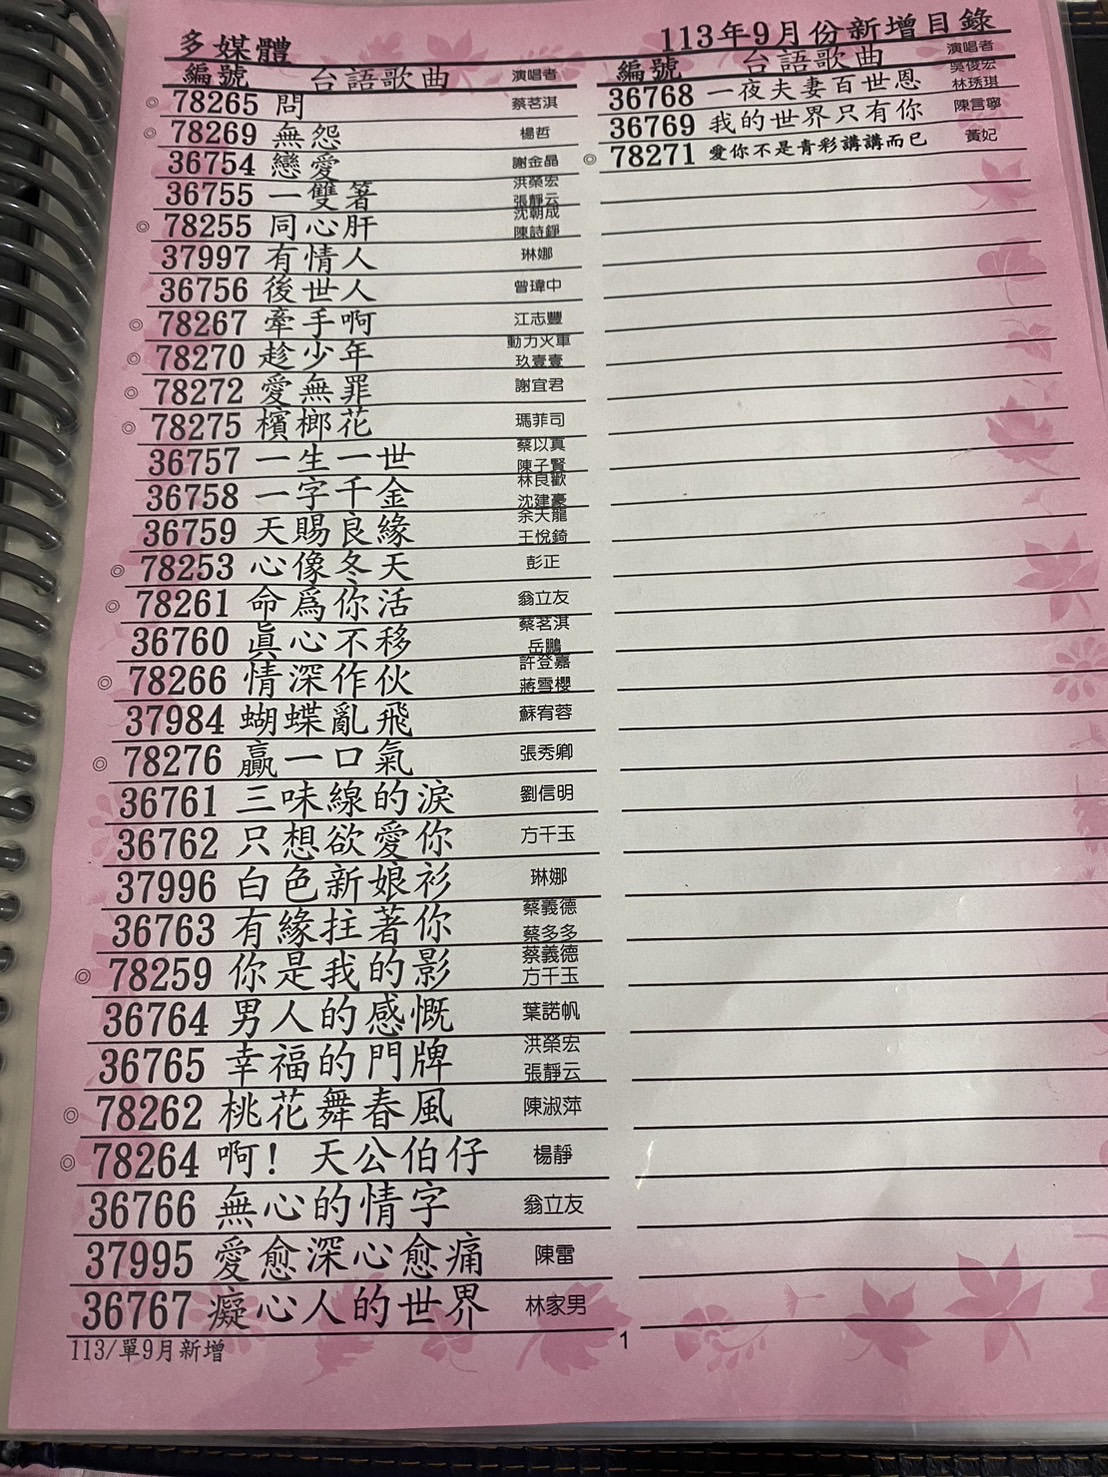 多媒體 113年9月份新增目錄
編號 台語歌曲 演唱者
◎ 78265 問 蔡茗淇
◎ 78269 無怨 楊哲
36754 戀愛 謝金晶
36755 一雙箸 洪榮宏 張靜云
◎ 78255 同心肝 沈朝成 陳詩錚
37997 有情人 琳娜
36756 後世人 曾瑋中
◎ 78267 牽手啊 江志豐
◎ 78270 趁少年 動力火車 玖壹壹
◎ 78272 愛無罪 謝宜君
◎ 78275 檳榔花 瑪菲司
36757 一生一世 蔡以真 陳子賢
36758 一字千金 林良歡 沈建豪
36759 天賜良緣 余天龍 王悅錡
◎ 78253 心像冬天 彭正
◎ 78261 命爲你活 翁立友
36760 眞心不移 蔡茗淇 岳鵬
◎ 78266 情深作伙 許登嘉 蔣雪櫻
37984 蝴蝶亂飛 蘇宥蓉
◎ 78276 贏一口氣 張秀卿
36761 三味線的淚 劉信明
36762 只想欲愛你 方千玉
37996 白色新娘衫 琳娜
36763 有緣拄著你 蔡義德 蔡多多
◎ 78259 你是我的影 蔡義德 方千玉
36764 男人的感慨 葉諾帆
36765 幸福的門牌 洪榮宏 張靜云
◎ 78262 桃花舞春風 陳淑萍
◎ 78264 啊！天公伯仔 楊靜
36766 無心的情字 翁立友
37995 愛愈深心愈痛 陳雷
36767 癡心人的世界 林家男
編號 台語歌曲 演唱者
36768 一夜夫妻百世恩 吳俊宏 林琇琪
36769 我的世界只有你 陳言寧
◎ 78271 愛你不是青彩講講而已 黃妃
113/單9月新增
1